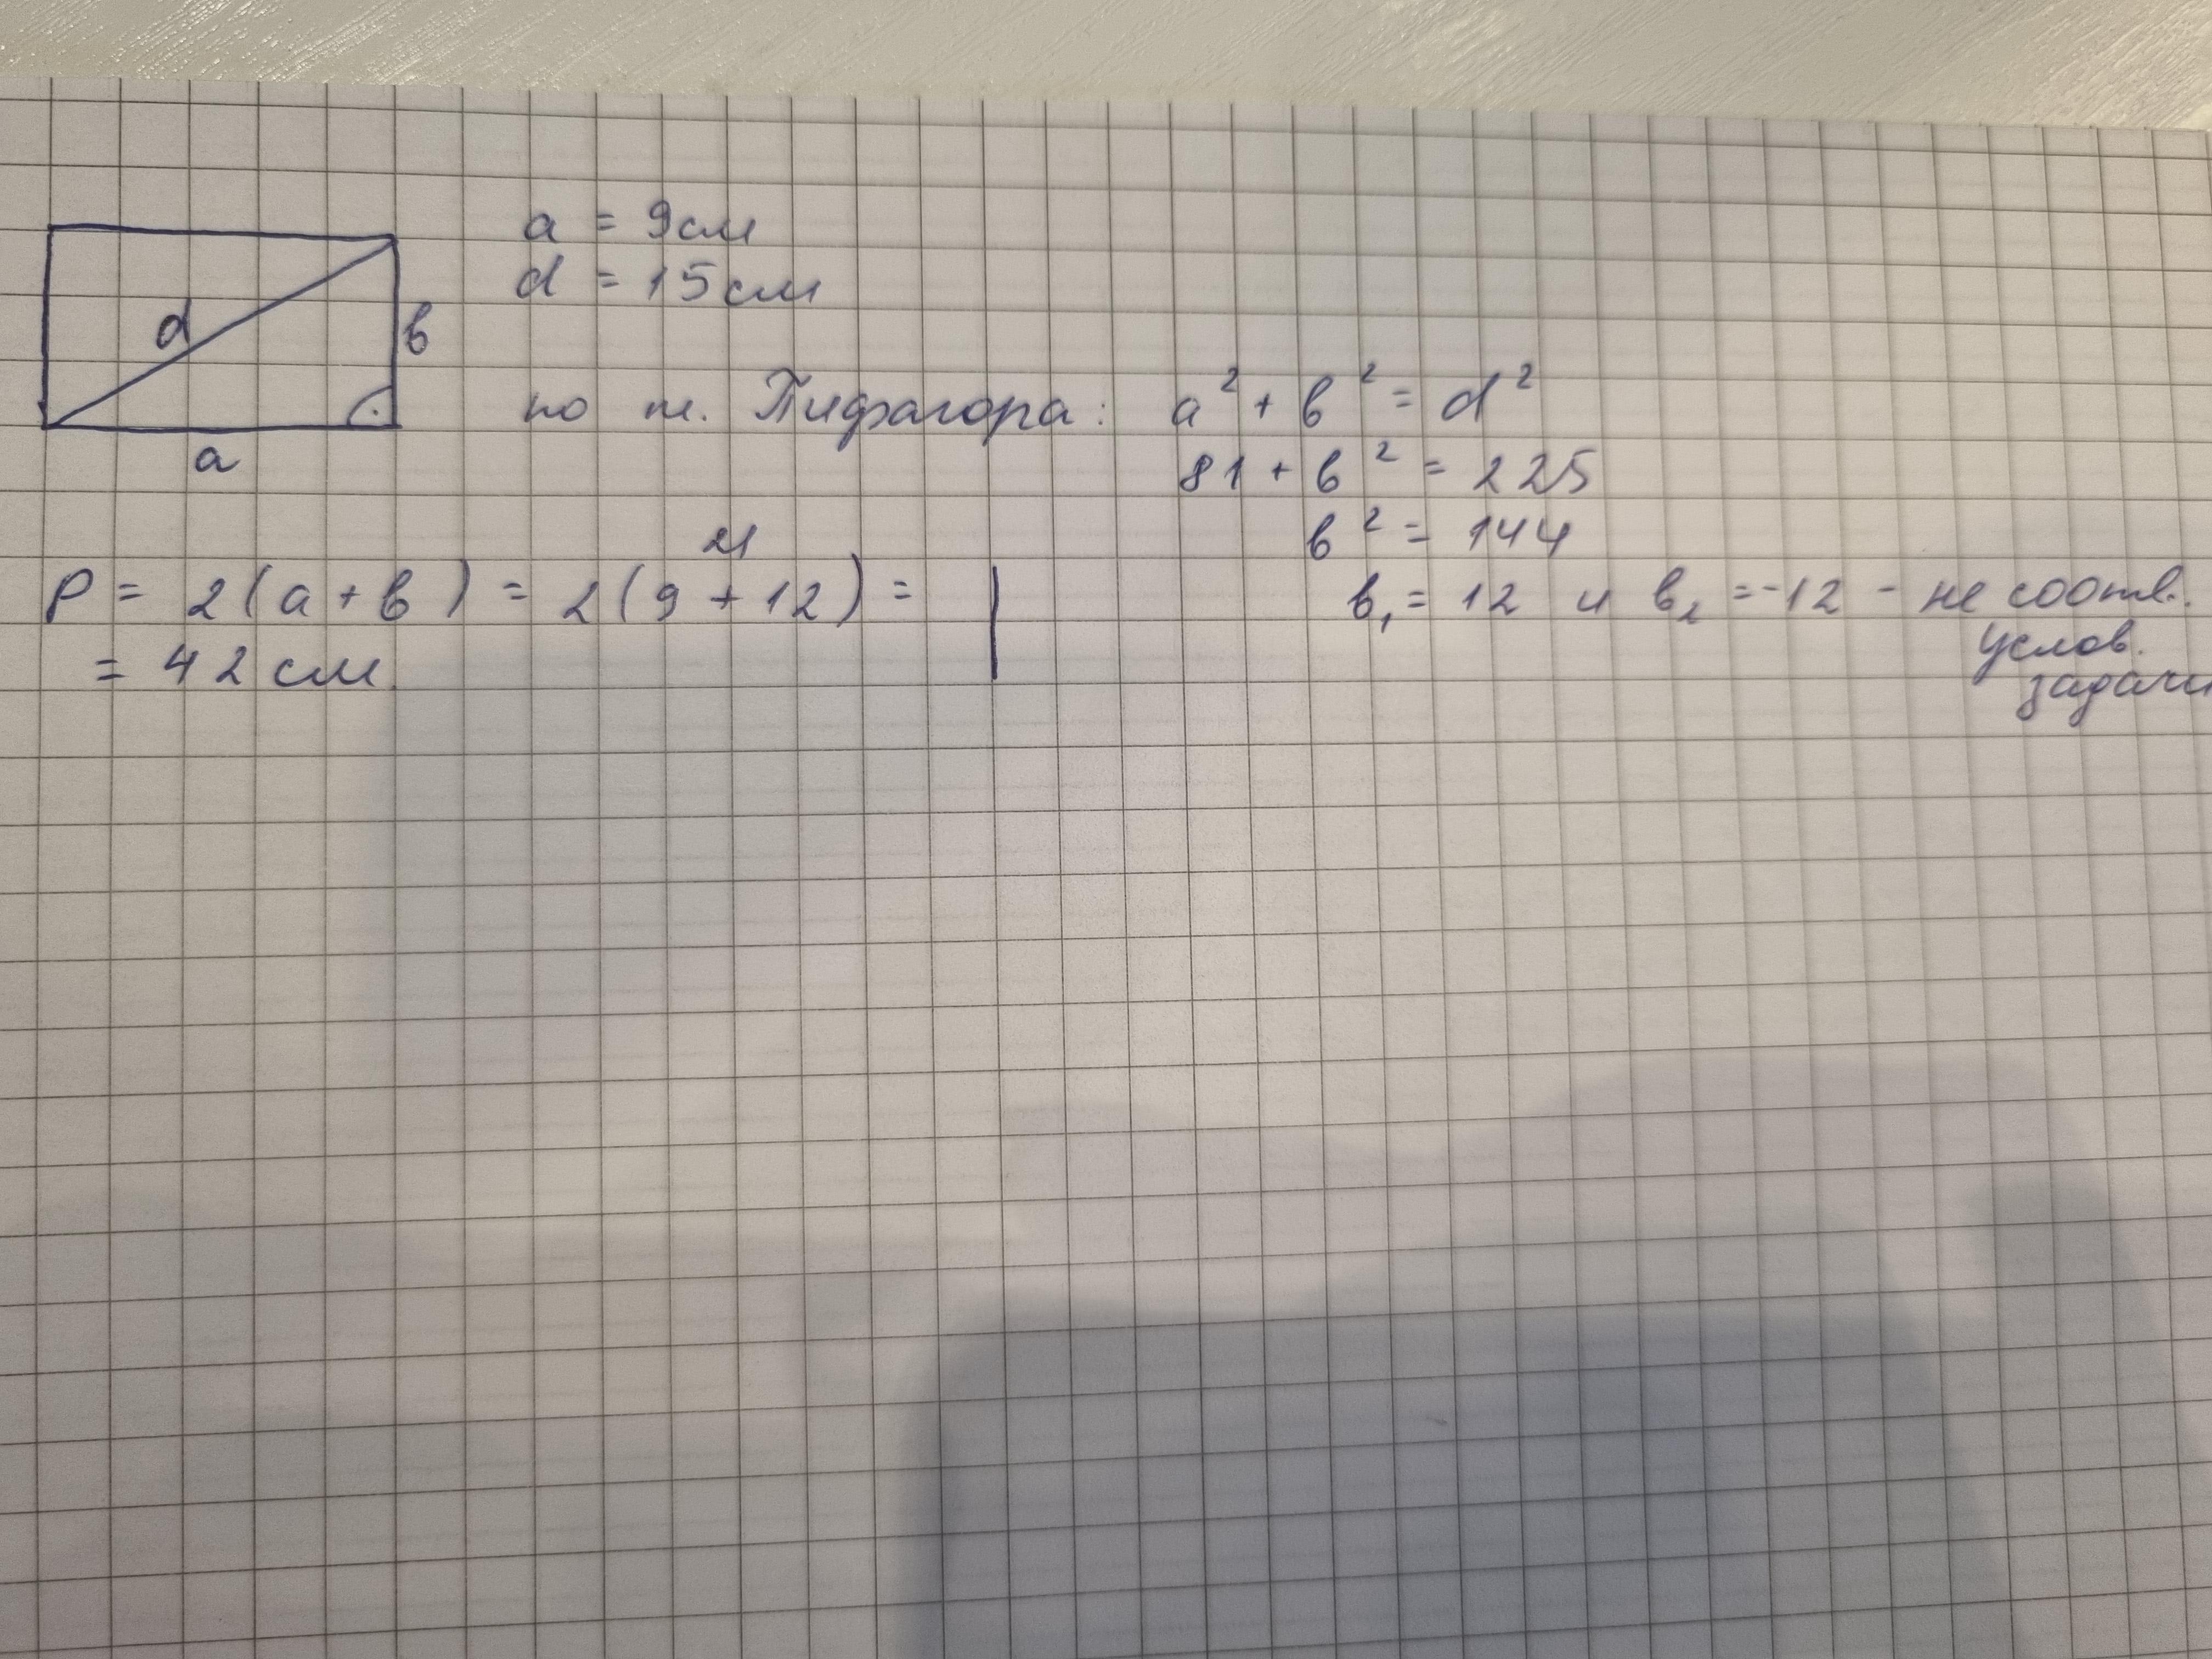 a = 9см
d = 15см
d
в
a
по т. Пифагора: a² + в² = d²
81 + в² = 225
в² = 144
в₁ = 12 и в₂ = -12 - не соотв.
услов.
задачи
21
P = 2(a + в) = 2(9 + 12) =
= 42 см.